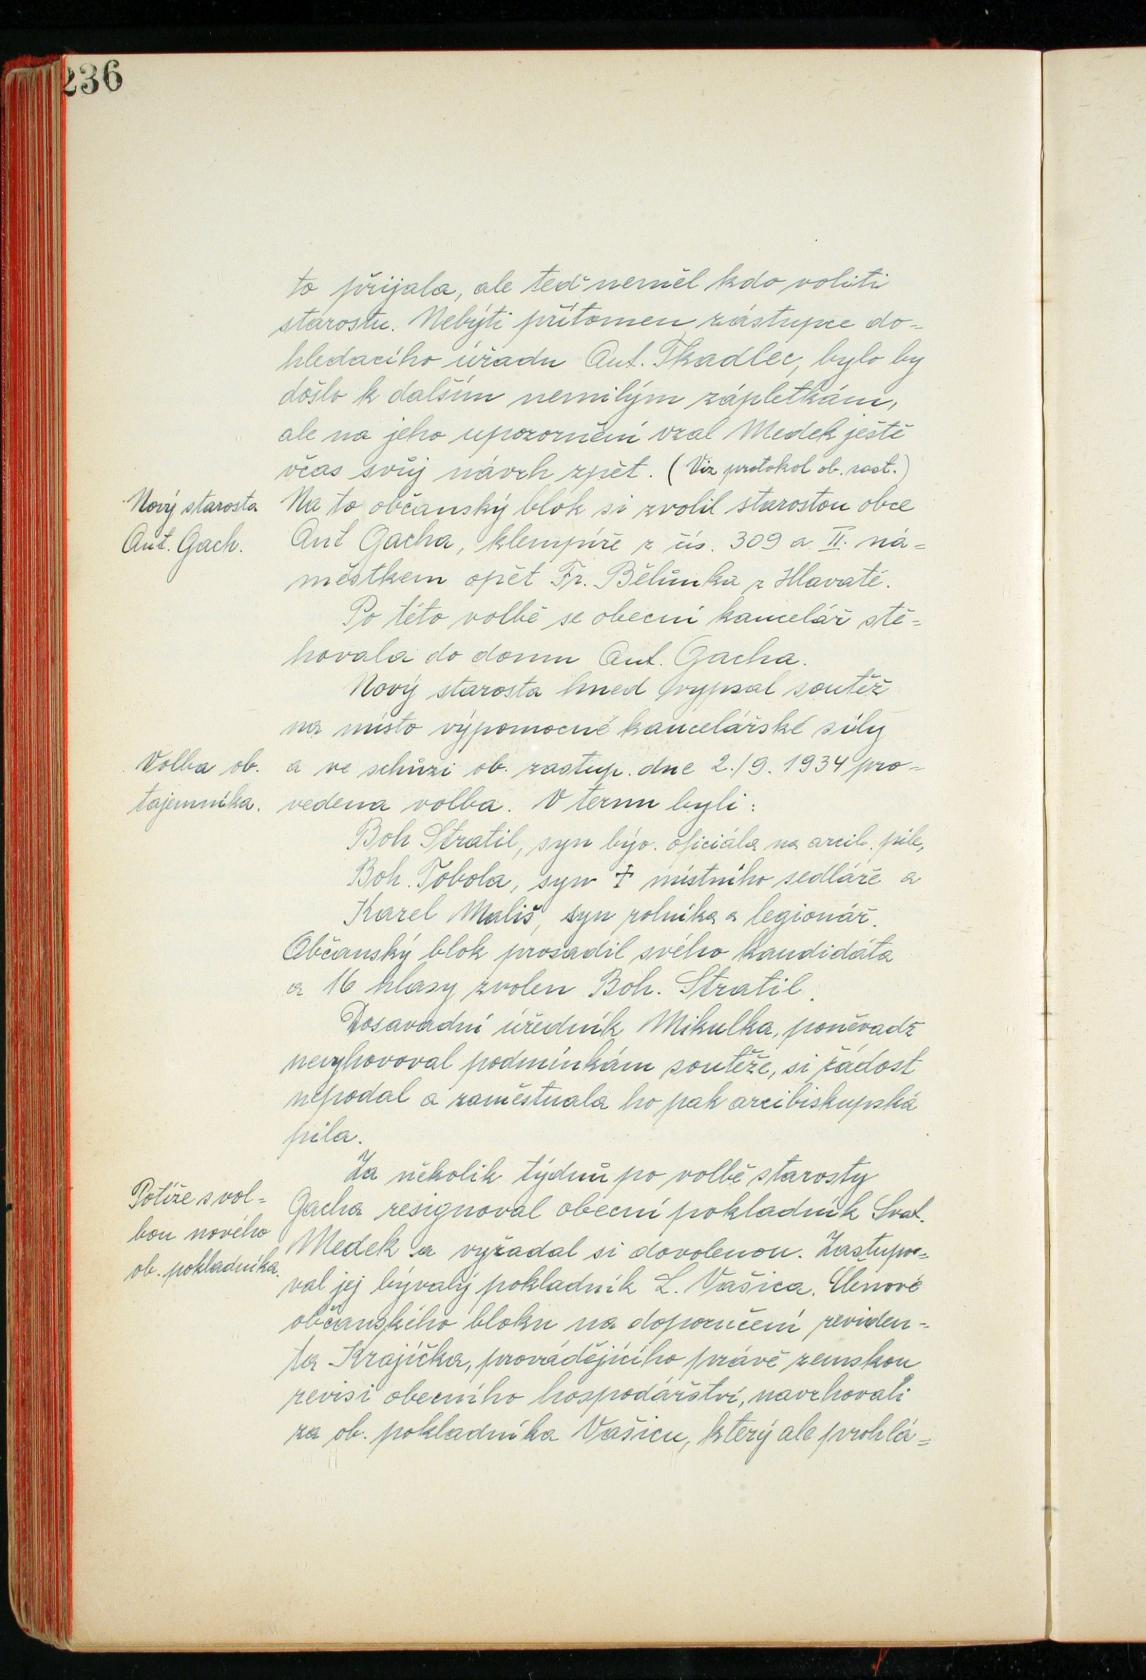 236
to přijala, ale teď neměl kdo voliti
starostu. Nebýti přítomen zástupce do=
hledacího úřadu Ant. Tkadlec, bylo by
došlo k dalším nemilým zápletkám,
ale na jeho upozornění vzal Medek ještě
včas svůj návrh zpět. (Viz protokol ob. zast.)
Nový starosta
Ant. Gach.
Na to občanský blok si zvolil starostou obce
Ant Gacha, klempíře z čís. 309 a II. ná=
městkem opět Fr. Bělůnka z Hlavaté.
Po této volbě se obecní kancelář stě=
hovala do domu Ant. Gacha.
Nový starosta hned vypsal soutěž
na místo výpomocné kancelářské síly
Volba ob.
tajemníka.
a ve schůzi ob. zastup. dne 2./9. 1934 pro=
vedena volba. V ternu byli:
Boh Stratil, syn býv. oficiála na arcib. pile,
Boh. Tobola, syn † místního sedláře a
Karel Mališ, syn rolníka a legionář.
Občanský blok prosadil svého kandidáta
a 16 hlasy zvolen Boh. Stratil.
Dosavadní úředník Mikulka, poněvadž
nevyhovoval podmínkám soutěže, si žádost
nepodal a zaměstnala ho pak arcibiskupská
pila.
Za několik týdnů po volbě starosty
Potíže s vol=
bou nového
ob. pokladníka.
Gacha resignoval obecní pokladník Svat.
Medek a vyžadal si dovolenou. Zastupo=
val jej bývalý pokladník L. Vašica. Členové
občanského bloku na doporučení reviden=
ta Krajíčka, provádějícího právě zemskou
revisi obecního hospodářství, navrhovali
za ob. pokladníka Vašicu, který ale prohlá=